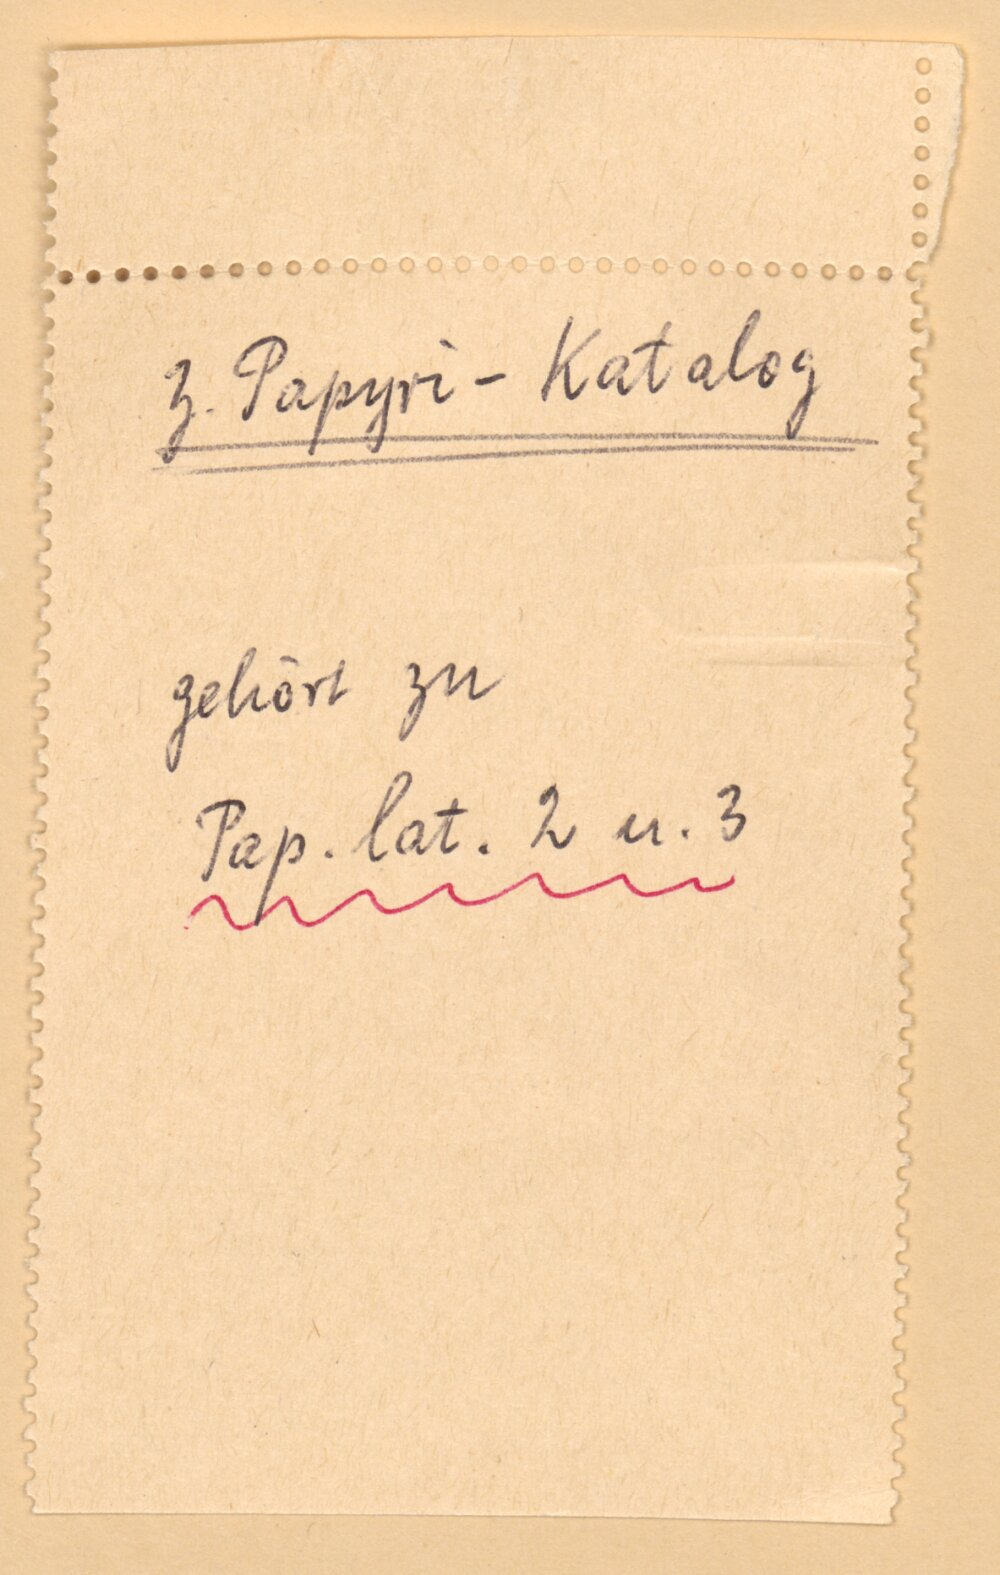 z. Papyri - Katalog
gehört zu
Pap. lat. 2 u. 3